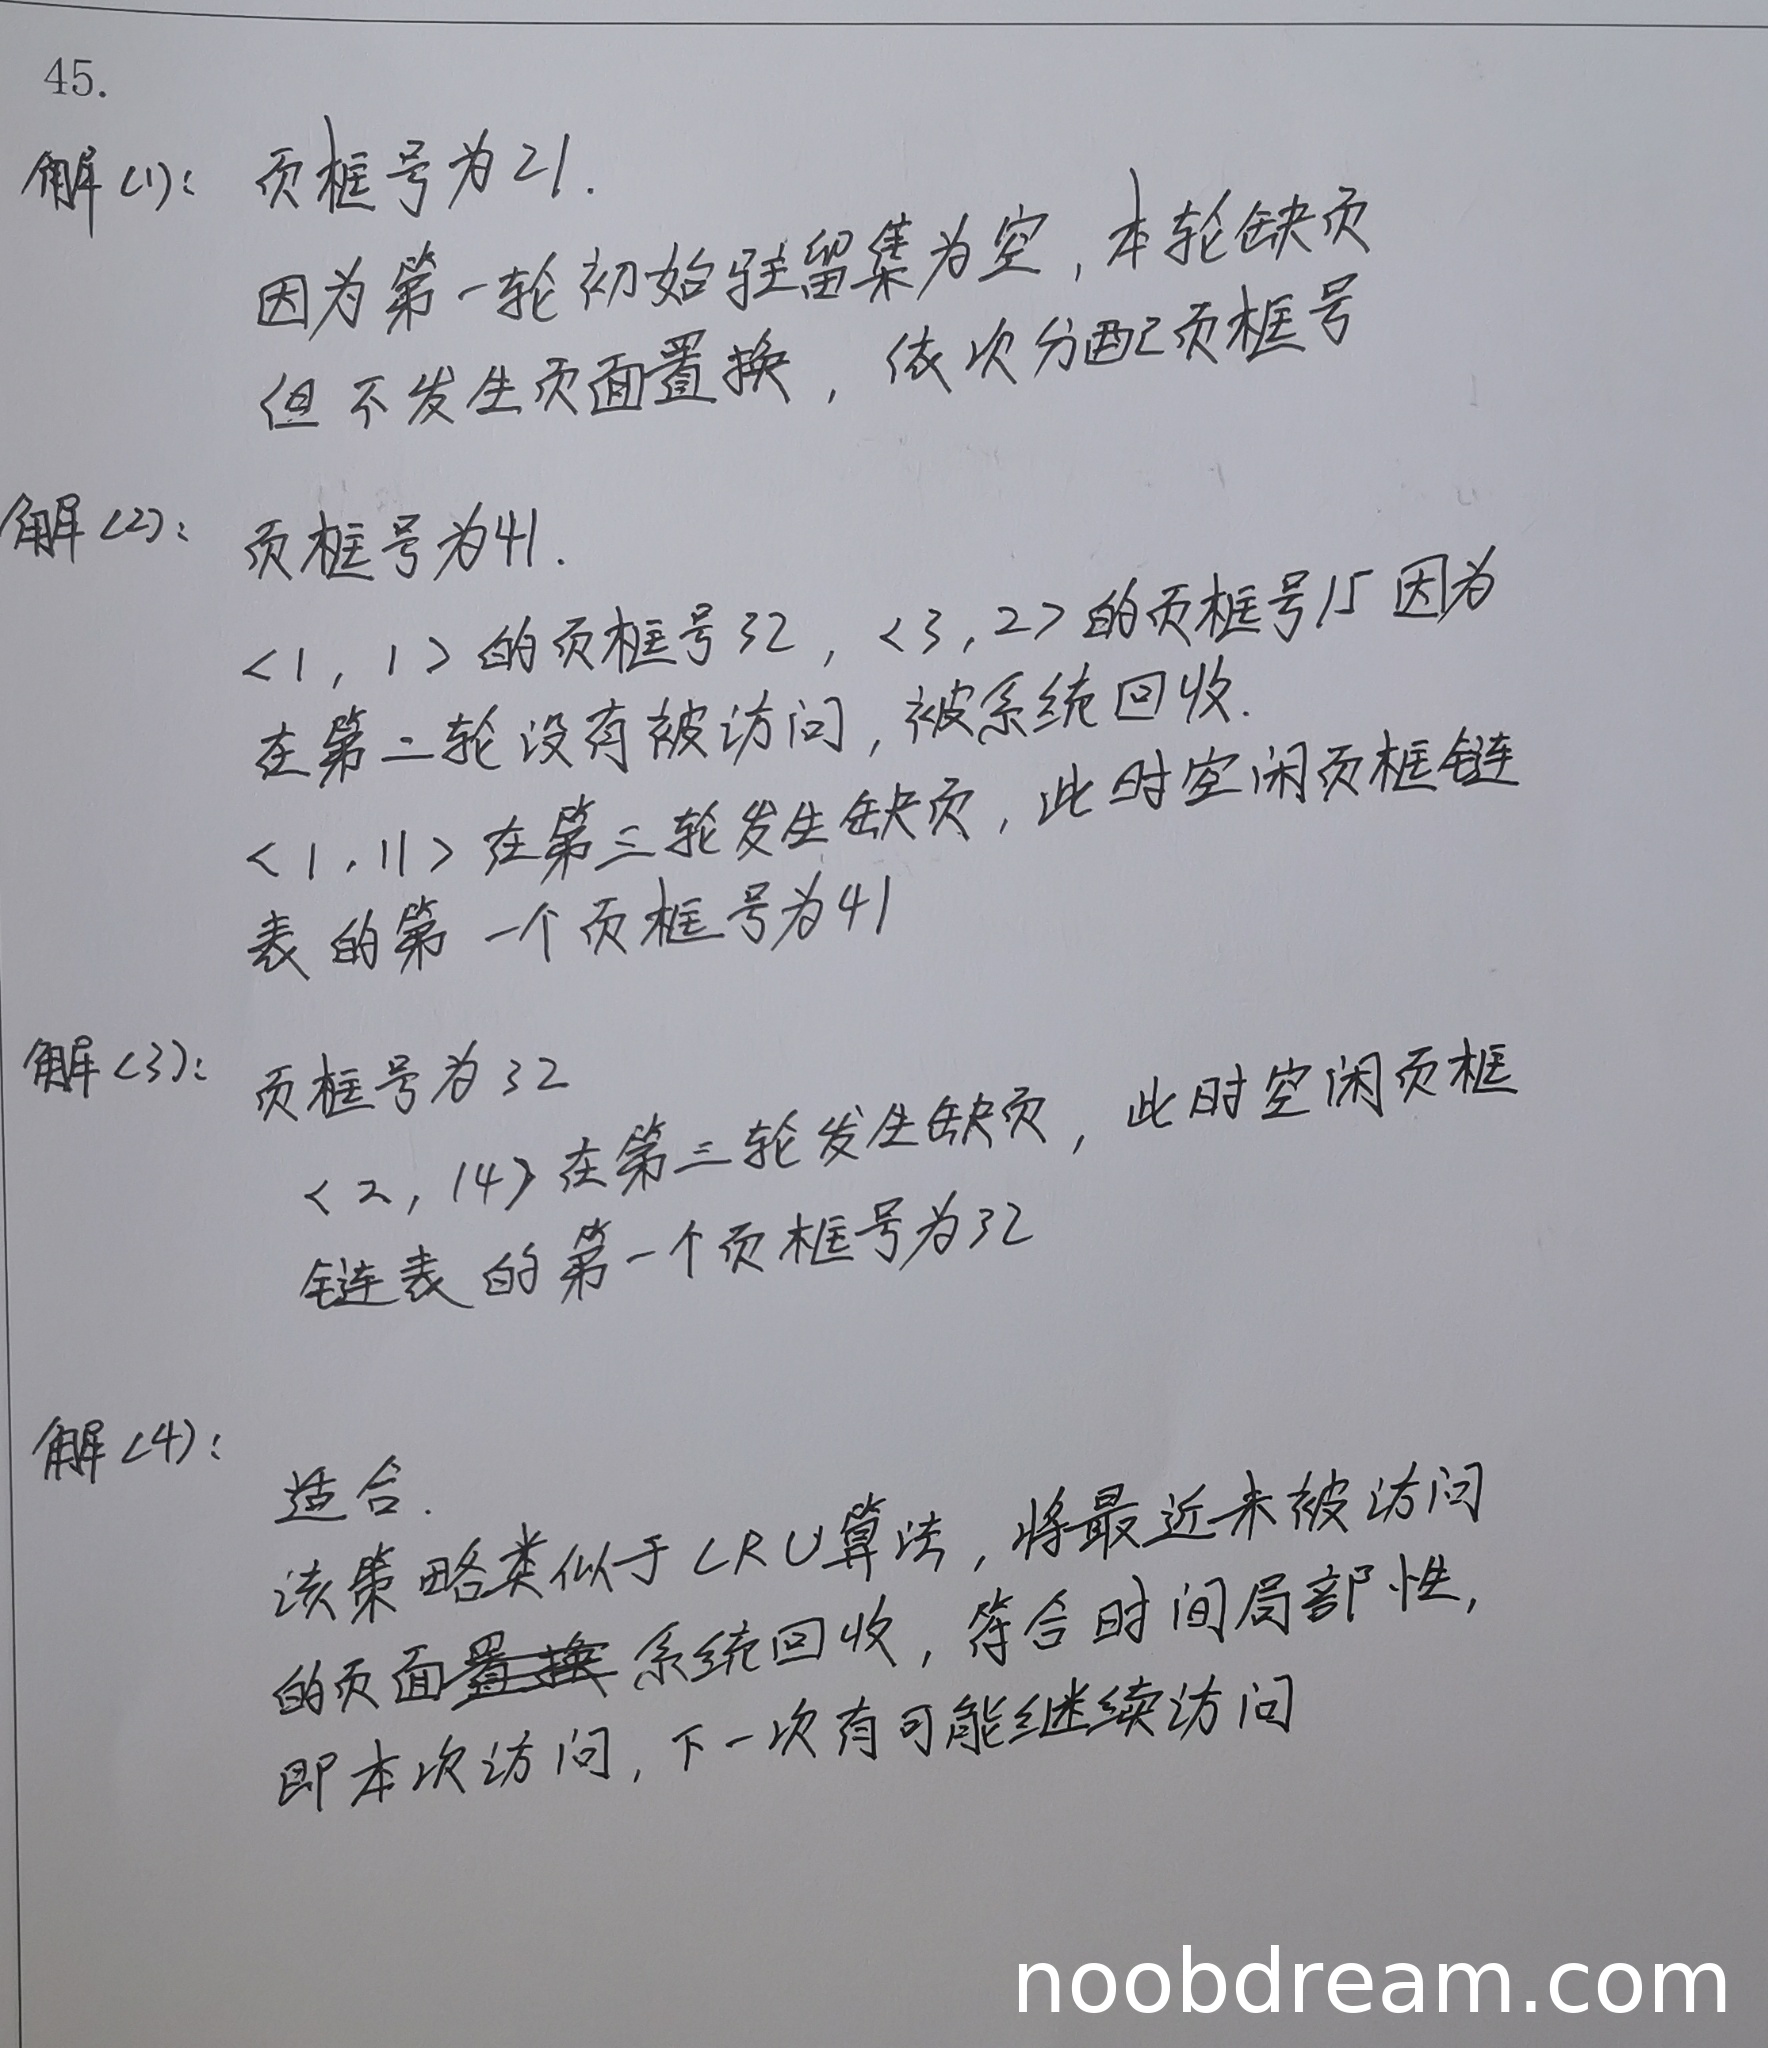 45.
解(1): 页框号为21.
因为第一轮初始驻留集为空,本轮缺页
但不发生页面置换,依次分配页框号
解(2): 页框号为41.
<1,1>的页框号32,<3,2>的页框号15因为
在第二轮没有被访问,被系统回收.
<1,11>在第三轮发生缺页,此时空闲页框链
表的第一个页框号为41
解(3): 页框号为32
<2,14>在第三轮发生缺页,此时空闲页框
链表的第一个页框号为32
解(4):
适合.
该策略类似于LRU算法,将最近未被访问
的页面置换系统回收,符合时间局部性,
即本次访问,下一次有可能继续访问
noobdream.com